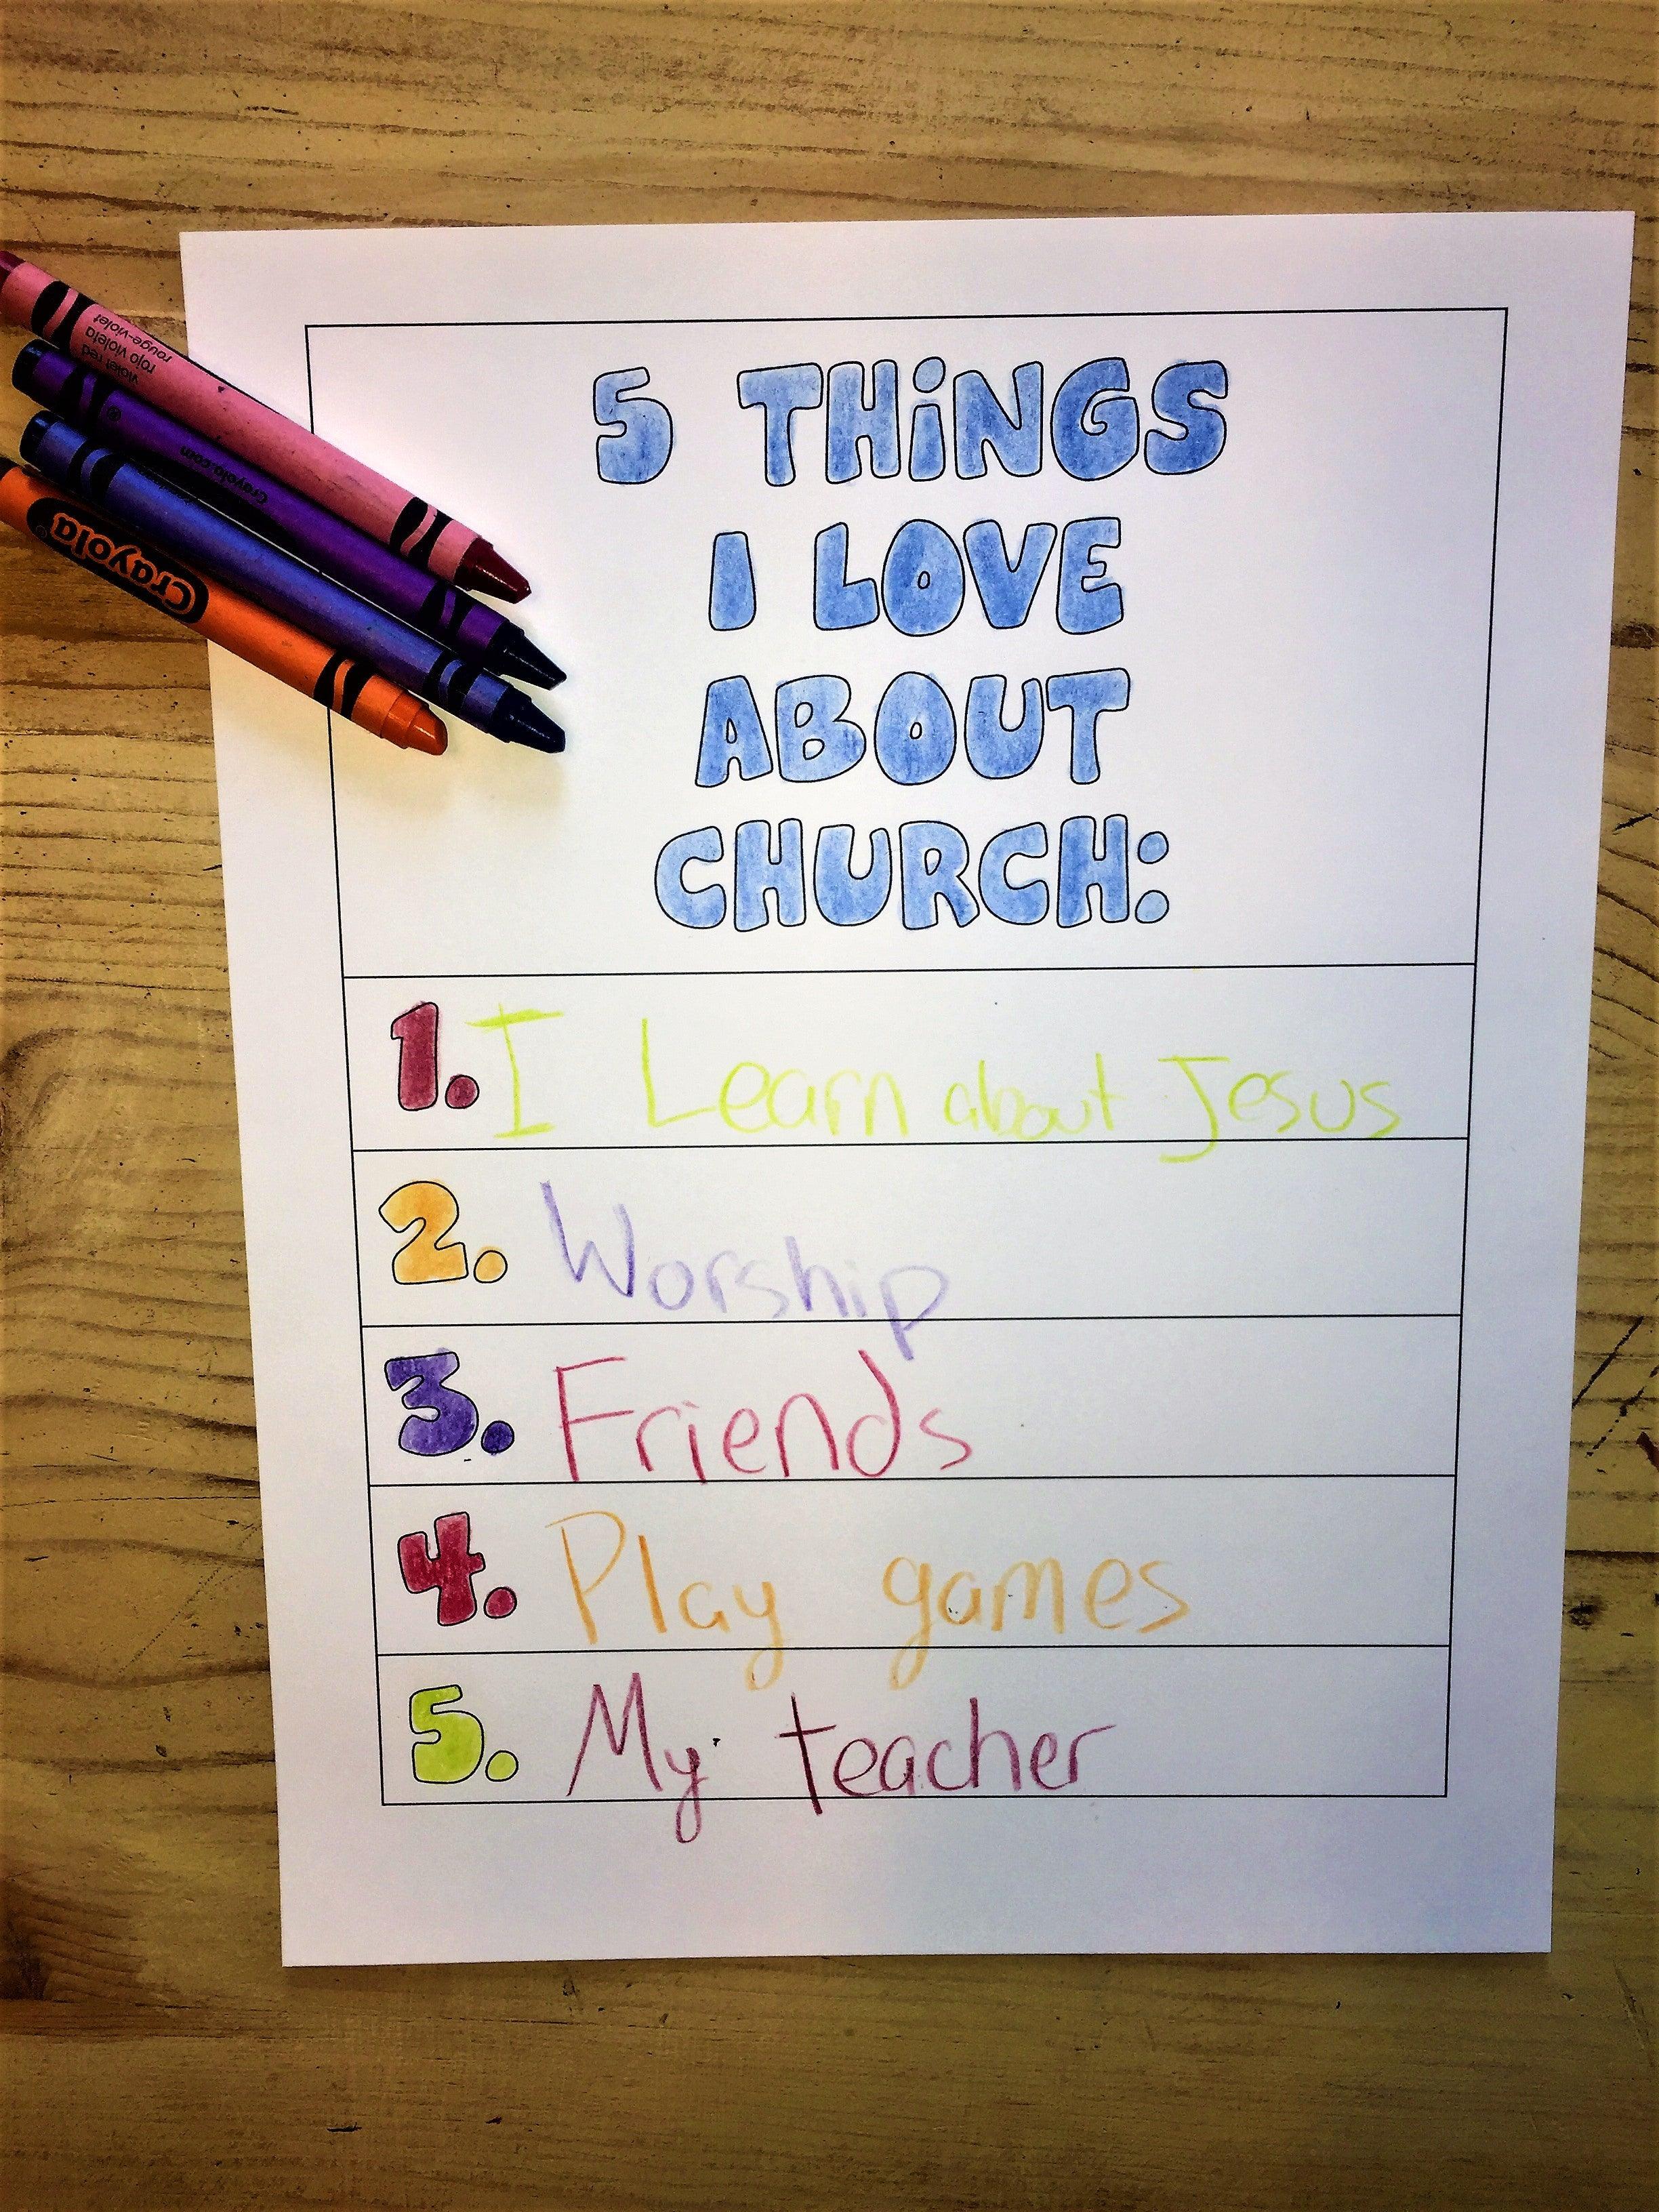 5 THiNGS
I LOVE
ABOUT
CHURCH:
1. I Learn about Jesus
2. Worship
3. Friends
4. Play games
5. My teacher
violet red
rojo violeta
rouge-violet
Crayola.com
Crayola